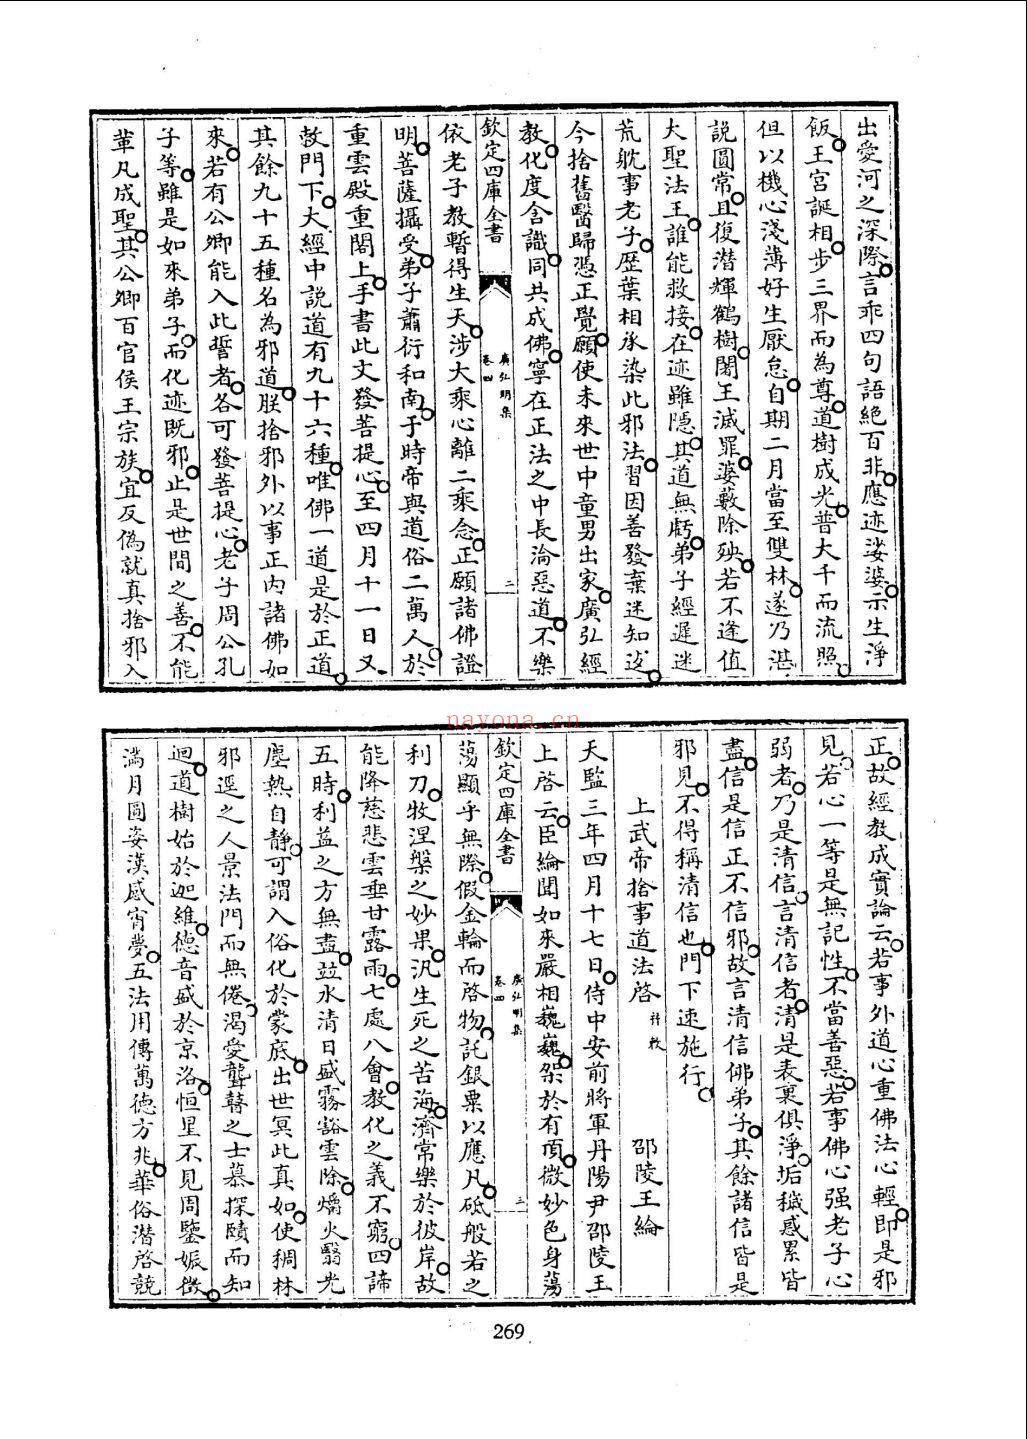 出愛河之深際言乖四句語絕百非應迹娑婆示生淨
飯王宮誕相步三界而為尊道樹成光普大千而流照
但以機心淺薄好生厭怠自期二月當至雙林遂乃湛
說圓常且復潛輝鶴樹闍王滅罪婆藪除殃若不逢值
大聖法王誰能救接在迹雖隱其道無虧弟子經遲迷
荒躭事老子歴葉相承染此邪法習因善發棄迷知返
今捨舊醫歸憑正覺願使未來世中童男出家廣弘經
教化度含識同共成佛寧在正法之中長淪惡道不樂
欽定四庫全書
廣弘明集
卷四
二
依老子教暫得生天涉大乘心離二乘念正願諸佛證
明菩薩攝受弟子蕭衍和南于時帝與道俗二萬人於
重雲殿重閣上手書此文發菩提心至四月十一日又
敕門下大經中説道有九十六種唯佛一道是於正道
其餘九十五種名為邪道朕捨邪外以事正内諸佛如
來若有公卿能入此誓者各可發菩提心老子周公孔
子等雖是如來弟子而化迹既邪止是世間之善不能
革凡成聖其公卿百官侯王宗族宜反偽就真捨邪入
正故經教成實論云若事外道心重佛法心輕即是邪
見若心一等是無記性不當善惡若事佛心强老子心
弱者乃是清信言清信者清是表裏俱淨垢穢惑累皆
盡信是信正不信邪故言清信佛弟子其餘諸信皆是
邪見不得稱清信也門下速施行
上武帝捨事道法啓 并敕 邵陵王綸
天監三年四月十七日侍中安前將軍丹陽尹邵陵王
上啓云臣綸聞如來嚴相巍巍架於有頂微妙色身蕩
欽定四庫全書
廣弘明集
卷四
三
蕩顯乎無際假金輪而啓物託銀粟以應凡砥般若之
利刀收涅槃之妙果汎生死之苦海濟常樂於彼岸故
能降慈悲雲垂甘露雨七處八會教化之義不窮四諦
五時利益之方無盡並水清日盛霧豁雲除爝火翳光
塵熱自静可謂入俗化於蒙底出世冥此真如使稠林
邪逕之人景法門而無倦渴愛聾瞽之士慕探賾而知
迴道樹始於迦維德音盛於京洛恒星不見周鑒娠徴
滿月圓姿漢感宵夢五法用傳萬德方兆華俗潛啓競
269
nayona.cn